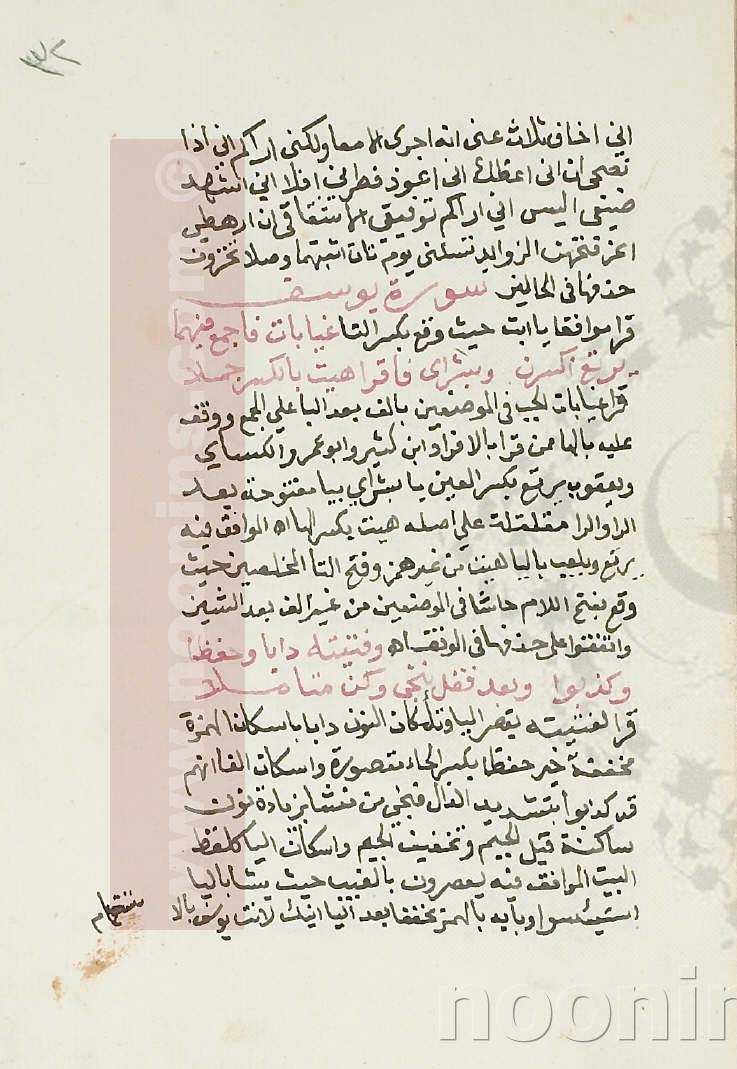 ٣٢
اني اخاف ثلاث عني انه اجرى الا معا ولكني اراكم اني اذا
نصحي ان اني اعظك اني اعوذ فطرني افلا اني اشهد
ضيفي اليس اني اراكم توفيقي الا شقاقي ان ارهطي
اعز فتحهن الزوايد تسئلني يوم يات اثبتهما وصلا تخزون
حذفها في الحالين سورة يوسف
قرا موافقا يا ابت حيث وقع بكسر التا غيابات فاجمع فيهما
يرتع اكسرن وبشراي فاقرا هيت بالكسر جملا
قرا غيابات الجب في الموضعين بالف بعد البا علي الجمع ووقف
عليه بالها من قرا بالافراد ابن كثير وابو عمرو والكساي
ويعقوب يرتع بكسر العين يا بشراي بيا مفتوحة بعد
الرا والرا مقللة علي اصله هيت بكسر الها اه الموافق فيه
يرتع ويلعب باليا هيت من غير همز وفتح التا المخلصين حيث
وقع بفتح اللام حاشا في الموضعين من غير الف بعد الشين
واتفقوا علي حذفها في الوقف اه وفتيته دابا وحفظا
وكذبوا وبعد فقل ننجي وكن متاملا
قرا لفتيته بقصر اليا وبالكان النون دابا باسكان الهمزة
مخففة خير حفظا بكسر الحاء مقصورة واسكان الفا انهم
قد كذبوا بتشديد الذال فننجي من نشا بزيادة نون
ساكنة قبل الجيم وتخفيف الجيم واسكان اليا كلفظ
البيت الموافق فيه يعصرون بالغيب حيث يشا باليا
استيئسوا وبابه بالهمز مخففا بعد اليا اينك لانت يوسف بالا
ستفهام
www.noonins.com ©
noonin